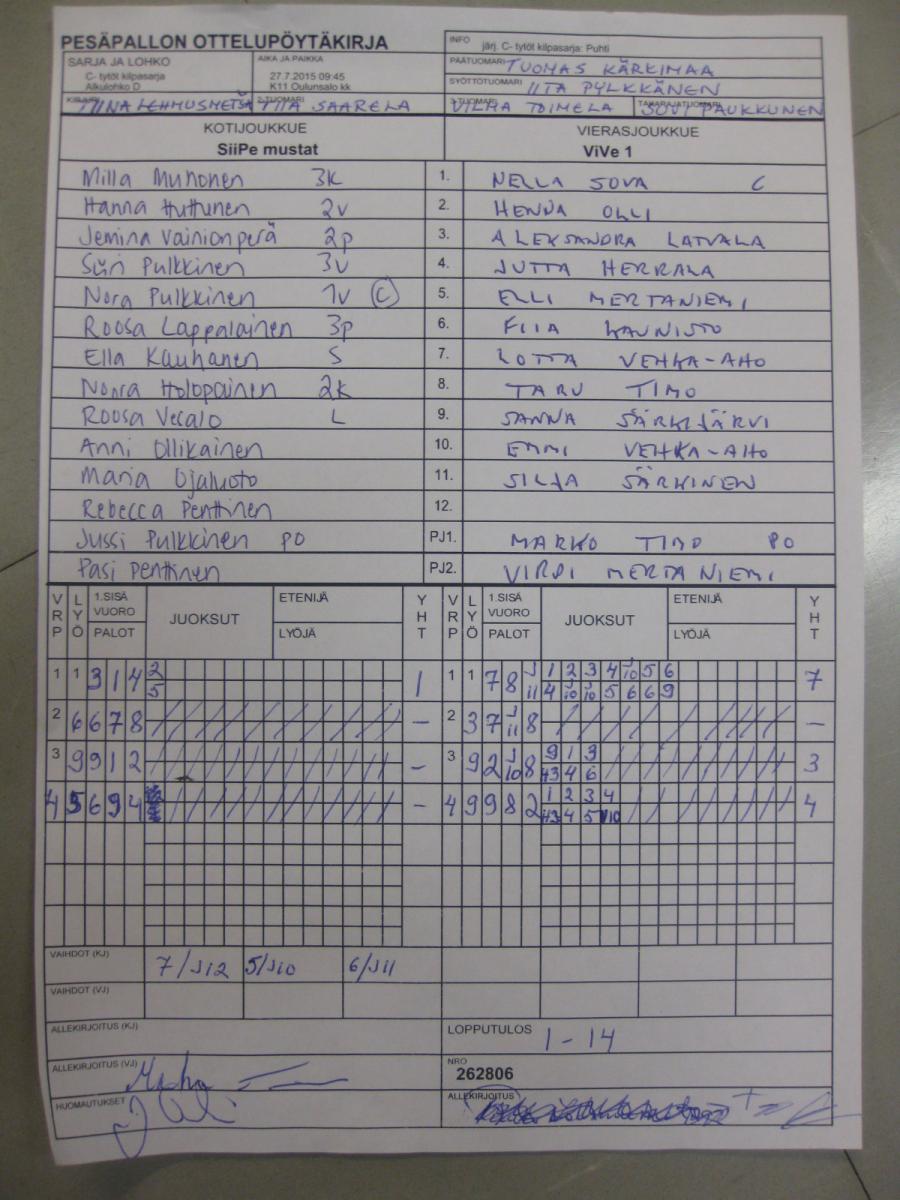 PESÄPALLON OTTELUPÖYTÄKIRJA
INFO järj. C- tytöt kilpasarja: Puhti
SARJA JA LOHKO
C- tytöt kilpasarja
Alkulohko D
AIKA JA PAIKKA
27.7.2015 09:45
K11 Oulunsalo kk
PÄÄTUOMARI TUOMAS KÄRKIMAA
SYÖTTÖTUOMARI IITA PYLKKÄNEN
TIINA LEHMUSMETSÄ
2-TUOMARI TIIA SAARELA
3-TUOMARI VILMA TOIMELA
TAKARAJATUOMARI SUVI PAUKKUNEN
KOTIJOUKKUE
SiiPe mustat
VIERASJOUKKUE
ViVe 1
Milla Muhonen 3K 1. NELLA SOVA C
Hanna Huttunen 2v 2. HENNA OLLI
Jemina Vainionperä 2p 3. ALEKSANDRA LATVALA
Siiri Pulkkinen 3v 4. JUTTA HERRALA
Nora Pulkkinen 1v C 5. ELLI MERTANIEMI
Roosa Lappalainen 3p 6. FIIA KAUNISTO
Ella Kauhanen S 7. LOTTA VEHKA-AHO
Noora Holopainen 2K 8. TARU TIMO
Roosa Vesalo L 9. SANNA SÄRKIJÄRVI
Anni Ollikainen 10. EMMI VEHKA-AHO
Maria Ojaluoto 11. SILJA SÄRKINEN
Rebecca Penttinen 12.
Jussi Pulkkinen PO PJ1. MARKO TIMO PO
Pasi Penttinen PJ2. VIRPI MERTANIEMI
VRP LYÖ 1.SISÄ VUORO PALOT JUOKSUT ETENIJÄ LYÖJÄ YHT VRP LYÖ 1.SISÄ VUORO PALOT JUOKSUT ETENIJÄ LYÖJÄ YHT
1 1 3 1 4 2 1 1 1 7 8 J 1 2 3 4 J10 5 6 7
5 11 4 J10 J10 5 6 6 9
2 6 6 7 8 - 2 3 7 J11 8 -
3 9 9 1 2 - 3 9 2 J10 8 9 1 3 3
43 4 6
4 5 6 9 4 - 4 9 9 8 2 1 2 3 4 4
43 4 5
VAIHDOT (KJ) 7/J12 5/J10 6/J11
VAIHDOT (VJ)
ALLEKIRJOITUS (KJ)
LOPPUTULOS 1 - 14
ALLEKIRJOITUS (VJ)
NRO
262806
HUOMAUTUKSET
ALLEKIRJOITUS